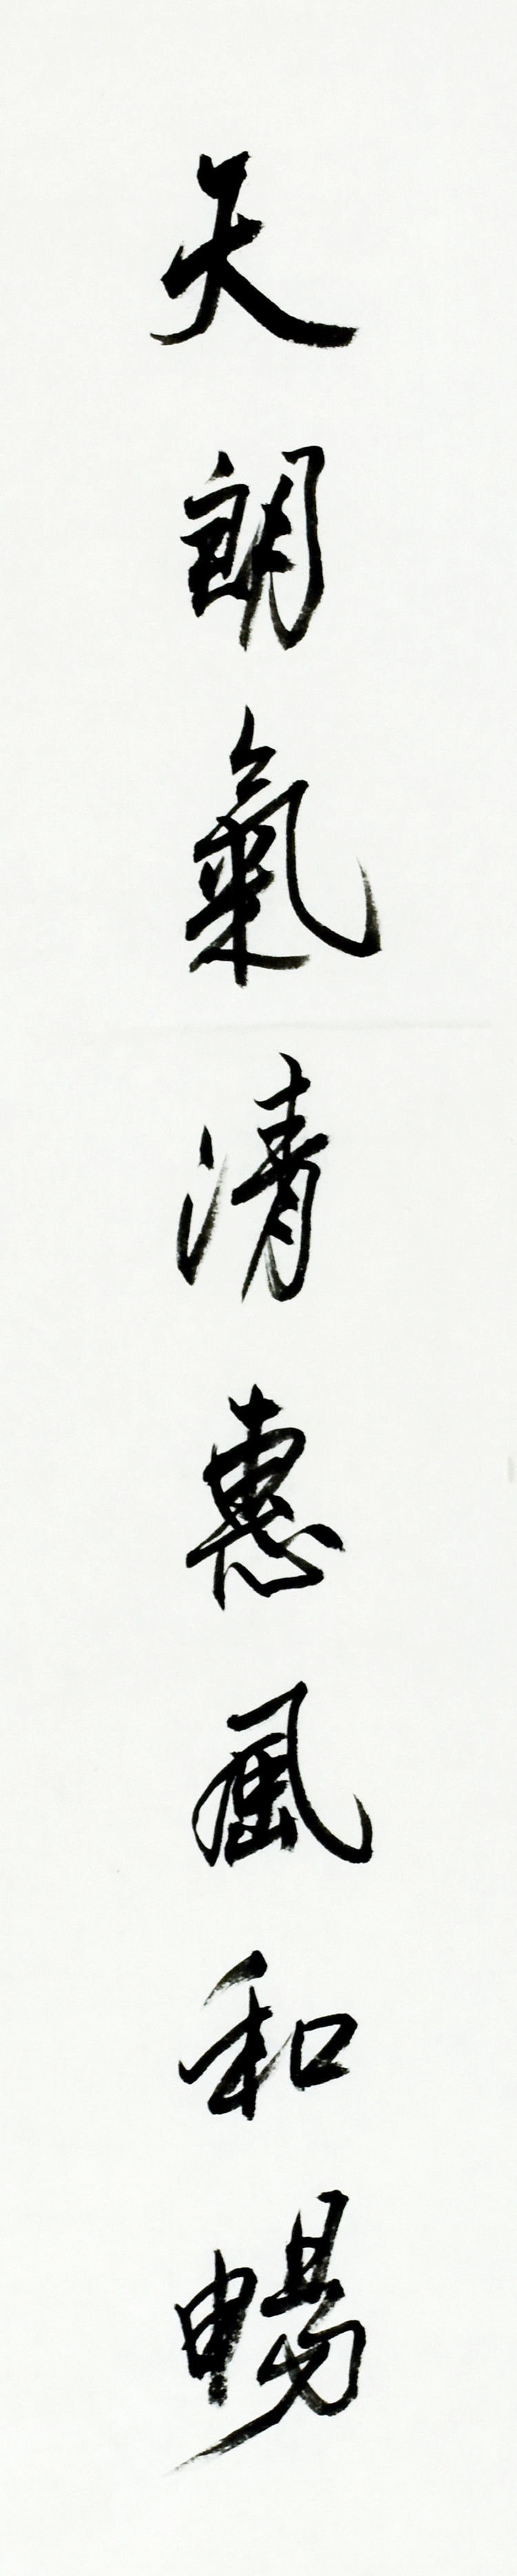 天朗氣清惠風和暢